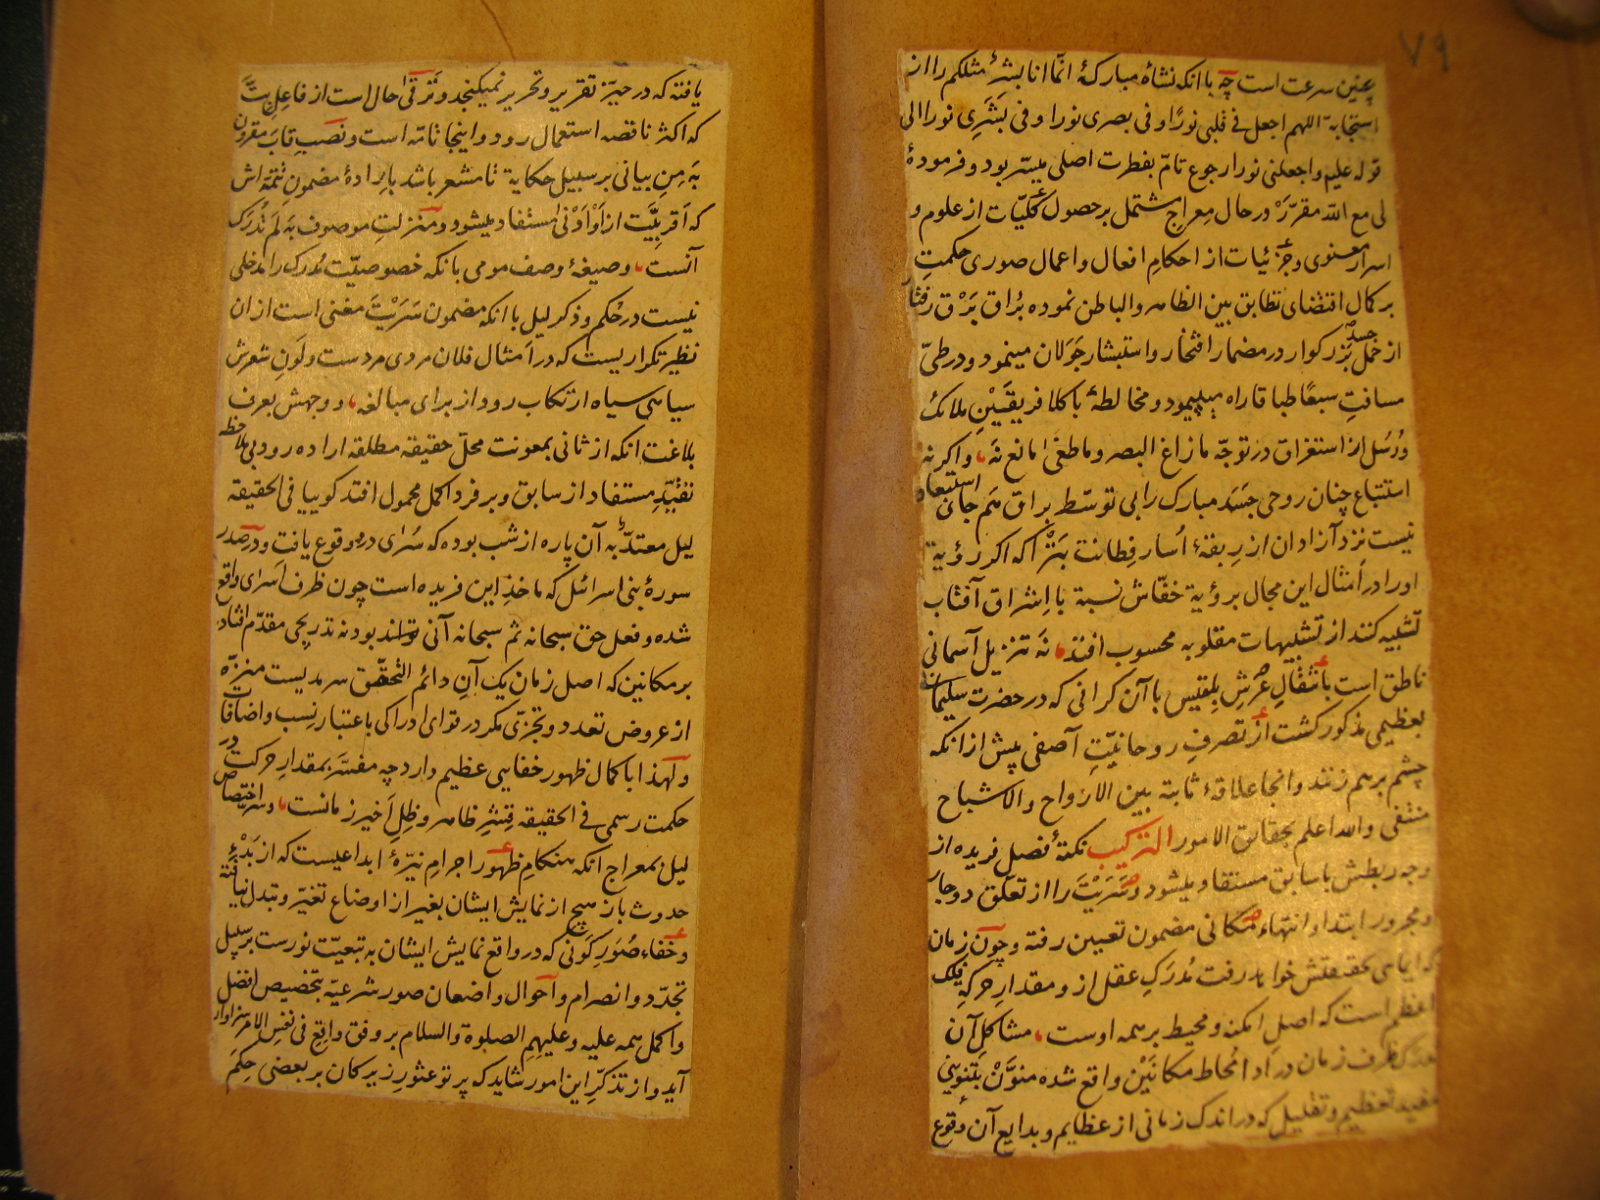 ٧٩
چنین سرعت است چه با انکه نشاهٔ مبارکهٔ انّما انا بشرٌ مثلکم را از
استجابهٔ اللهم اجعل فی قلبی نورًا و فی بصری نورا و فی بَشَرِی نورا الی
قوله علیم و اجعلنی نورا رجوع تامّ بفطرت اصلی میسّر بود و فرمودهٔ
لی مع اللّه مقرّرْ در حال مِعراجِ مشتمل بر حصول کلیّات از علوم و
اسرار معنوی و جزئیات از احکامِ افعال و اعمال صوری حکمتِ
بر کمال اقتضای تطابق بین الظاهر والباطن نموده بُراق بَرْق رفتار
از حمل جسدِ بزرکوار در مضمار افتخار و استبشار جَوَلان مینمود و در طیّ
مسافتِ سبعًا طباقا راه میپیمود و مخالطهٔ با کلا فریقَیْنِ ملائک
و رُسَل از استغراق در توجّه ما زاغ البصر و ما طغیٰ مانع نَه، و اکر نه
استتباع چنان روحی جَسَد مبارک را بی توسّط براق هَم جای استبعاد
نیست نزد آزادان از رِبقهٔ اُسار فِطانت بَتْرا که اکر رؤیة
او را در اَمثال این مجال برؤیة خفّاش نسبة با اِشراق آفتاب
تشبیه کنند از تشبیهات مقلوبه محسوب افتد، نَه تنزیل آسمانی
ناطق است بانتقالِ عَرشِ بِلقیس با آن کرانی که در حضرت سلیمان
بعظیمی مذکور کشت از تصرفِ روحانیّتِ آصفی پیش از انکه
چشم برهم زنند و انجا علاقهٔ ثابتة بین الارواح والاشباح
منتفی والله اعلم بحقایق الامور الترکیب نکتهٔ فصل فریده از
وجه ربطش با سابق مستفاد میشود و سَرَیْتَ را از تعلّق دو جار
و مجرور ابتدا و انتهاء مکانی مضمون تعیین رفته و چون زمان
که ایمایی بحقیقتش خواهد رفت مُدرَکِ عقل ازو مقدارِ حرکهِ فلک
اعظم است که اصل امکنه و محیط بر همه اوست، مشاکلِ آن
ظرف زمان در اَداءِ مُحاط مکانَیْن واقع شده منوَّنْ بتنوینی
مفید تعظیم و تقلیل که در اندک زمانی از عظایم و بدایع آن وقوع
یافته که در حیّز تقریر و تحریر نمیکنجد و تَرْقیٰ حال است از فاعل بِتَّ
که اکثر ناقصه استعمال رود و اینجا تامّه است و نصبِ قابَ مقرون
به مِن بیانی بر سبیل حکایة تا مشعر باشد بارادهٔ مضمونِ تتمّه اش
که اَقربیَّت از اَوْاَدْنیٰ مستفاد میشود و منزلت موصوف به لَم تُدرَک
آنست، و صیغهٔ وصف مومی بانکه خصوصیّت مُدرِک را مدخلی
نیست در حُکم و ذکر لیل با انکه مضمون سَرَیْتَ مغنی است از ان
نظیر تکراریست که در اَمثال فلان مردی مردست و لَونِ شعرش
سیاهی سیاه ارتکاب رود از برای مبالغه، و وجهش بعرف
بلاغت انکه از ثانی بمعونت محلّ حقیقه مطلقه اراده رود بی ملاحظه
تقیّدِ مستفاد از سابق و بر فرد اکمل محمول افتد کوییا فی الحقیقه
لیل معتدٌّ به آن پاره از شب بوده که سُرٰی درو وقوع یافت و در صدر
سورهٔ بنی اسرائیل که ماخذِ این فریده است چون ظرف اَسرٰی واقع
شده و فعل حق سبحانه ثم سبحانه آنی تواند بود نه تدریجی مقدّم افتاد
بر مکانین که اصل زمان یک آنِ دائم التحقّق سرمدیست منزّه
از عروض تعدد و تجزّی مکر در قوای ادراکی باعتبار نِسب و اضافات
و لهذا با کمال ظهور خفایی عظیم دارد چه مفسَّر بمقدارِ حرکت در
حکمت رسمی فی الحقیقه قِشرِ ظاهر و ظِلِ اَخیر زمانست، و سِرِّ اختصاص
لیل بمعراج انکه هنکامِ ظهور اجرامِ نیّرهٔ ابداعیست که از بَدْءِ
حدوث باز هیچ از نمایش ایشان بغیر از اوضاع تغیّر و تبدل نیافته
و خفاء صُوَرِ کَونی که در واقع نمایش ایشان به تبعیّت نورست بر سبیل
تجدّد و انصرام و اَحوال و اضعان صور شرعیّه بتخصیص افضل
و اکمل همه علیه و علیهم الصلوة والسلام بر وفق واقع فی نفس الامر سزاوار
آید و از تذکّرِ این امور شاید که پرتو عثورِ زیرکان بر بعضی حِکَم